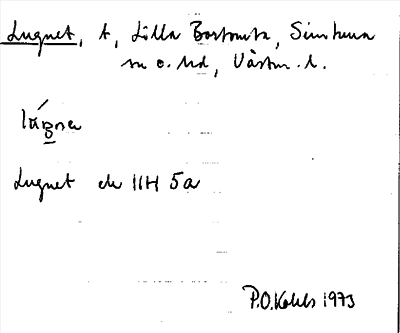 Lugnet, t, Lilla Bortomta, Simtuna
sn o. hd, Västm. l.
Lugnet ek 11H 5a
P.O. Kohls 1973